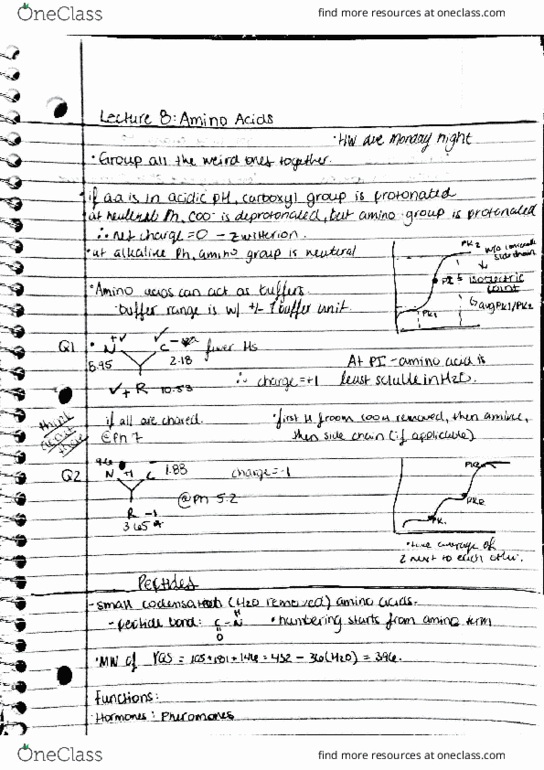 OneClass
find more resources at oneclass.com
Lecture 8: Amino Acids
• HW due Monday night
• Group all the weird ones together.
• if aa is in acidic pH, carboxyl group is protonated
at neutral Ph, COO⁻ is deprotonated, but amino group is protonated
∴ net charge = 0 - zwitterion.
• at alkaline Ph, amino group is neutral
PK2
w/o
side chain
PI = isoelectric point
↳ avg PK1/PK2
PK1
• Amino acids can act as buffers
• buffer range is w/ +/- 1 buffer unit
Q1
N + C -
fewer Hs
8.95
2.18
+ R 10.53
∴ charge = +1
At PI - amino acid is
least soluble in H2O.
think about these
if all are chared.
@pH 7
• first H from COOH removed, then amine,
then side chain (if applicable)
Q2
9.6
N +1 C
1.88
charge = -1
@pH 5.2
R -1
3.65
PK1
PKR
PK2
• take average of
2 next to each other.
Peptides
- small codensation (H2O removed) amino acids.
- peptide bond: C - N
H
O
• numbering starts from amino term
• MW of YGS = 105 + 181 + 146 = 432 - 36 (H2O) = 396.
Functions:
Hormones: Pheromones
OneClass
find more resources at oneclass.com